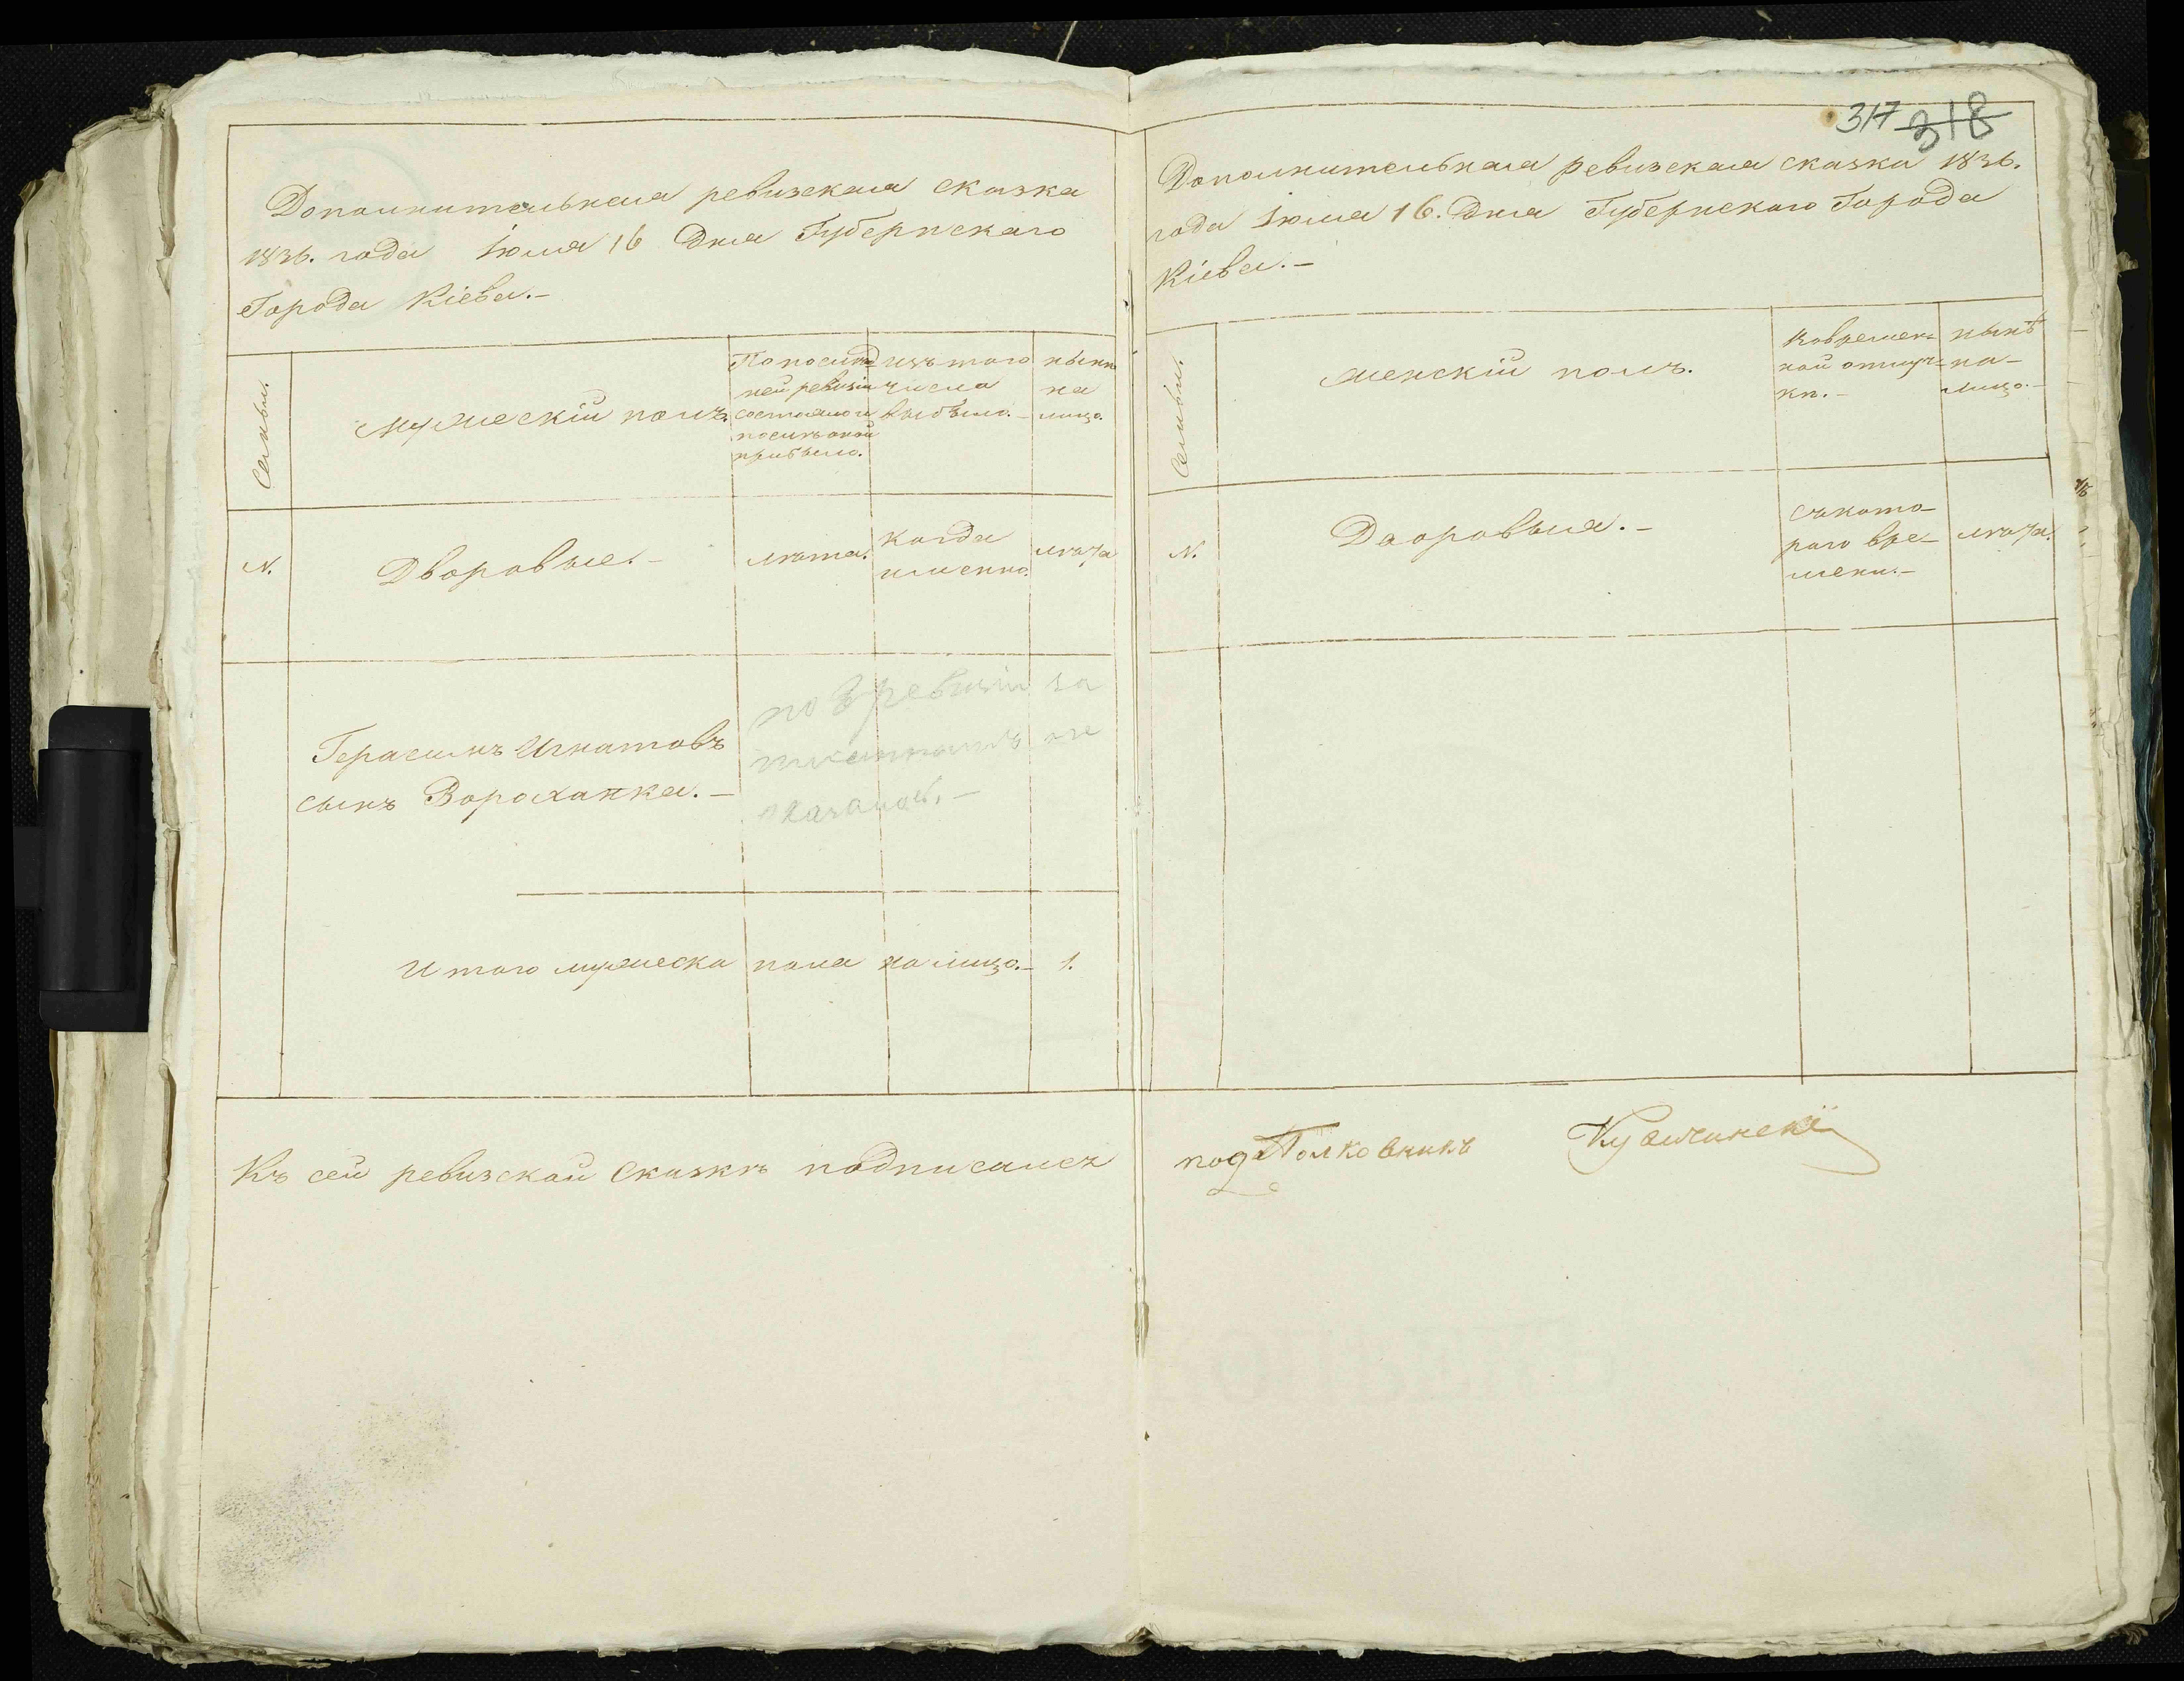 Дополнительная ревизская сказка
1836. года Іюля 16 Дня Губернскаго
Города Кіева.-
Семьи.
Мужескій полъ.
По послѣд
ней ревизіи
состояло и
послѣ оной
прибыло.
изъ того
числа
выбыло.-
нынѣ
на
лицо.
N.
Дворовые.-
лѣта.
когда
именно.
лѣта
Герасимъ Игнатовъ
сынъ
по 8 ревизіи за
не
оказалось.-
Итого мужеска пола на лицо.- 1.
Къ сей ревизской сказкѣ подписался
317 318
Дополнительная ревизская сказка 1836.
года Іюля 16. Дня Губернскаго Города
Кіева.-
Семьи.
Женскій полъ.
Во времен-
ной отлуч-
кѣ.-
нынѣ
на-
лицо.-
N.
Дворовыя.-
съ кото-
раго вре-
мени.-
лѣта.
подПолковникъ